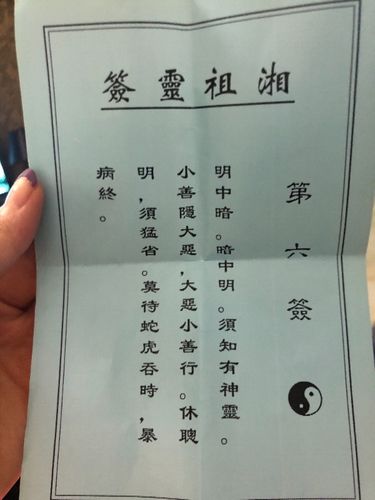 湘祖靈籤
第六籤
明中暗。暗中明。須知有神靈。
小善隱大惡,大惡小善行。休聰
明,須猛省。莫待蛇虎吞時,暴
病終。